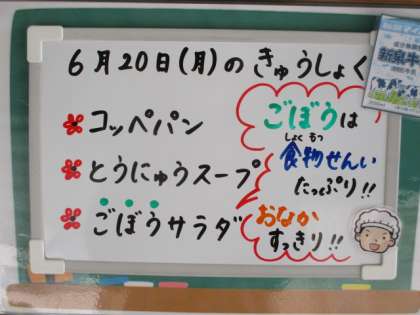 6月20日(月)のきゅうしょく
コッペパン
とうにゅうスープ
ごぼうサラダ
ごぼうは
しょくもつ
食物せんい
たっぷり!!
おなか
すっきり!!